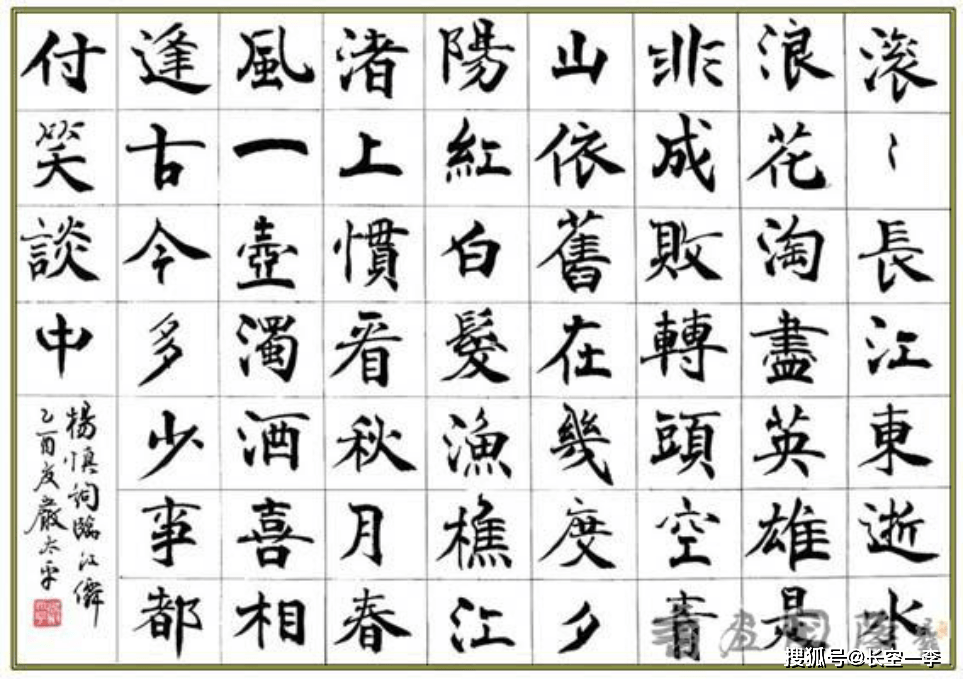 滚〻長江東逝水
浪花淘盡英雄是
非成敗轉頭空青
山依舊在幾度夕
陽紅白髮漁樵江
渚上慣看秋月春
風一壺濁酒喜相
逢古今多少事都
付笑談中
楊慎詞臨江僊
乙酉嚴太平
搜狐号@长空一李